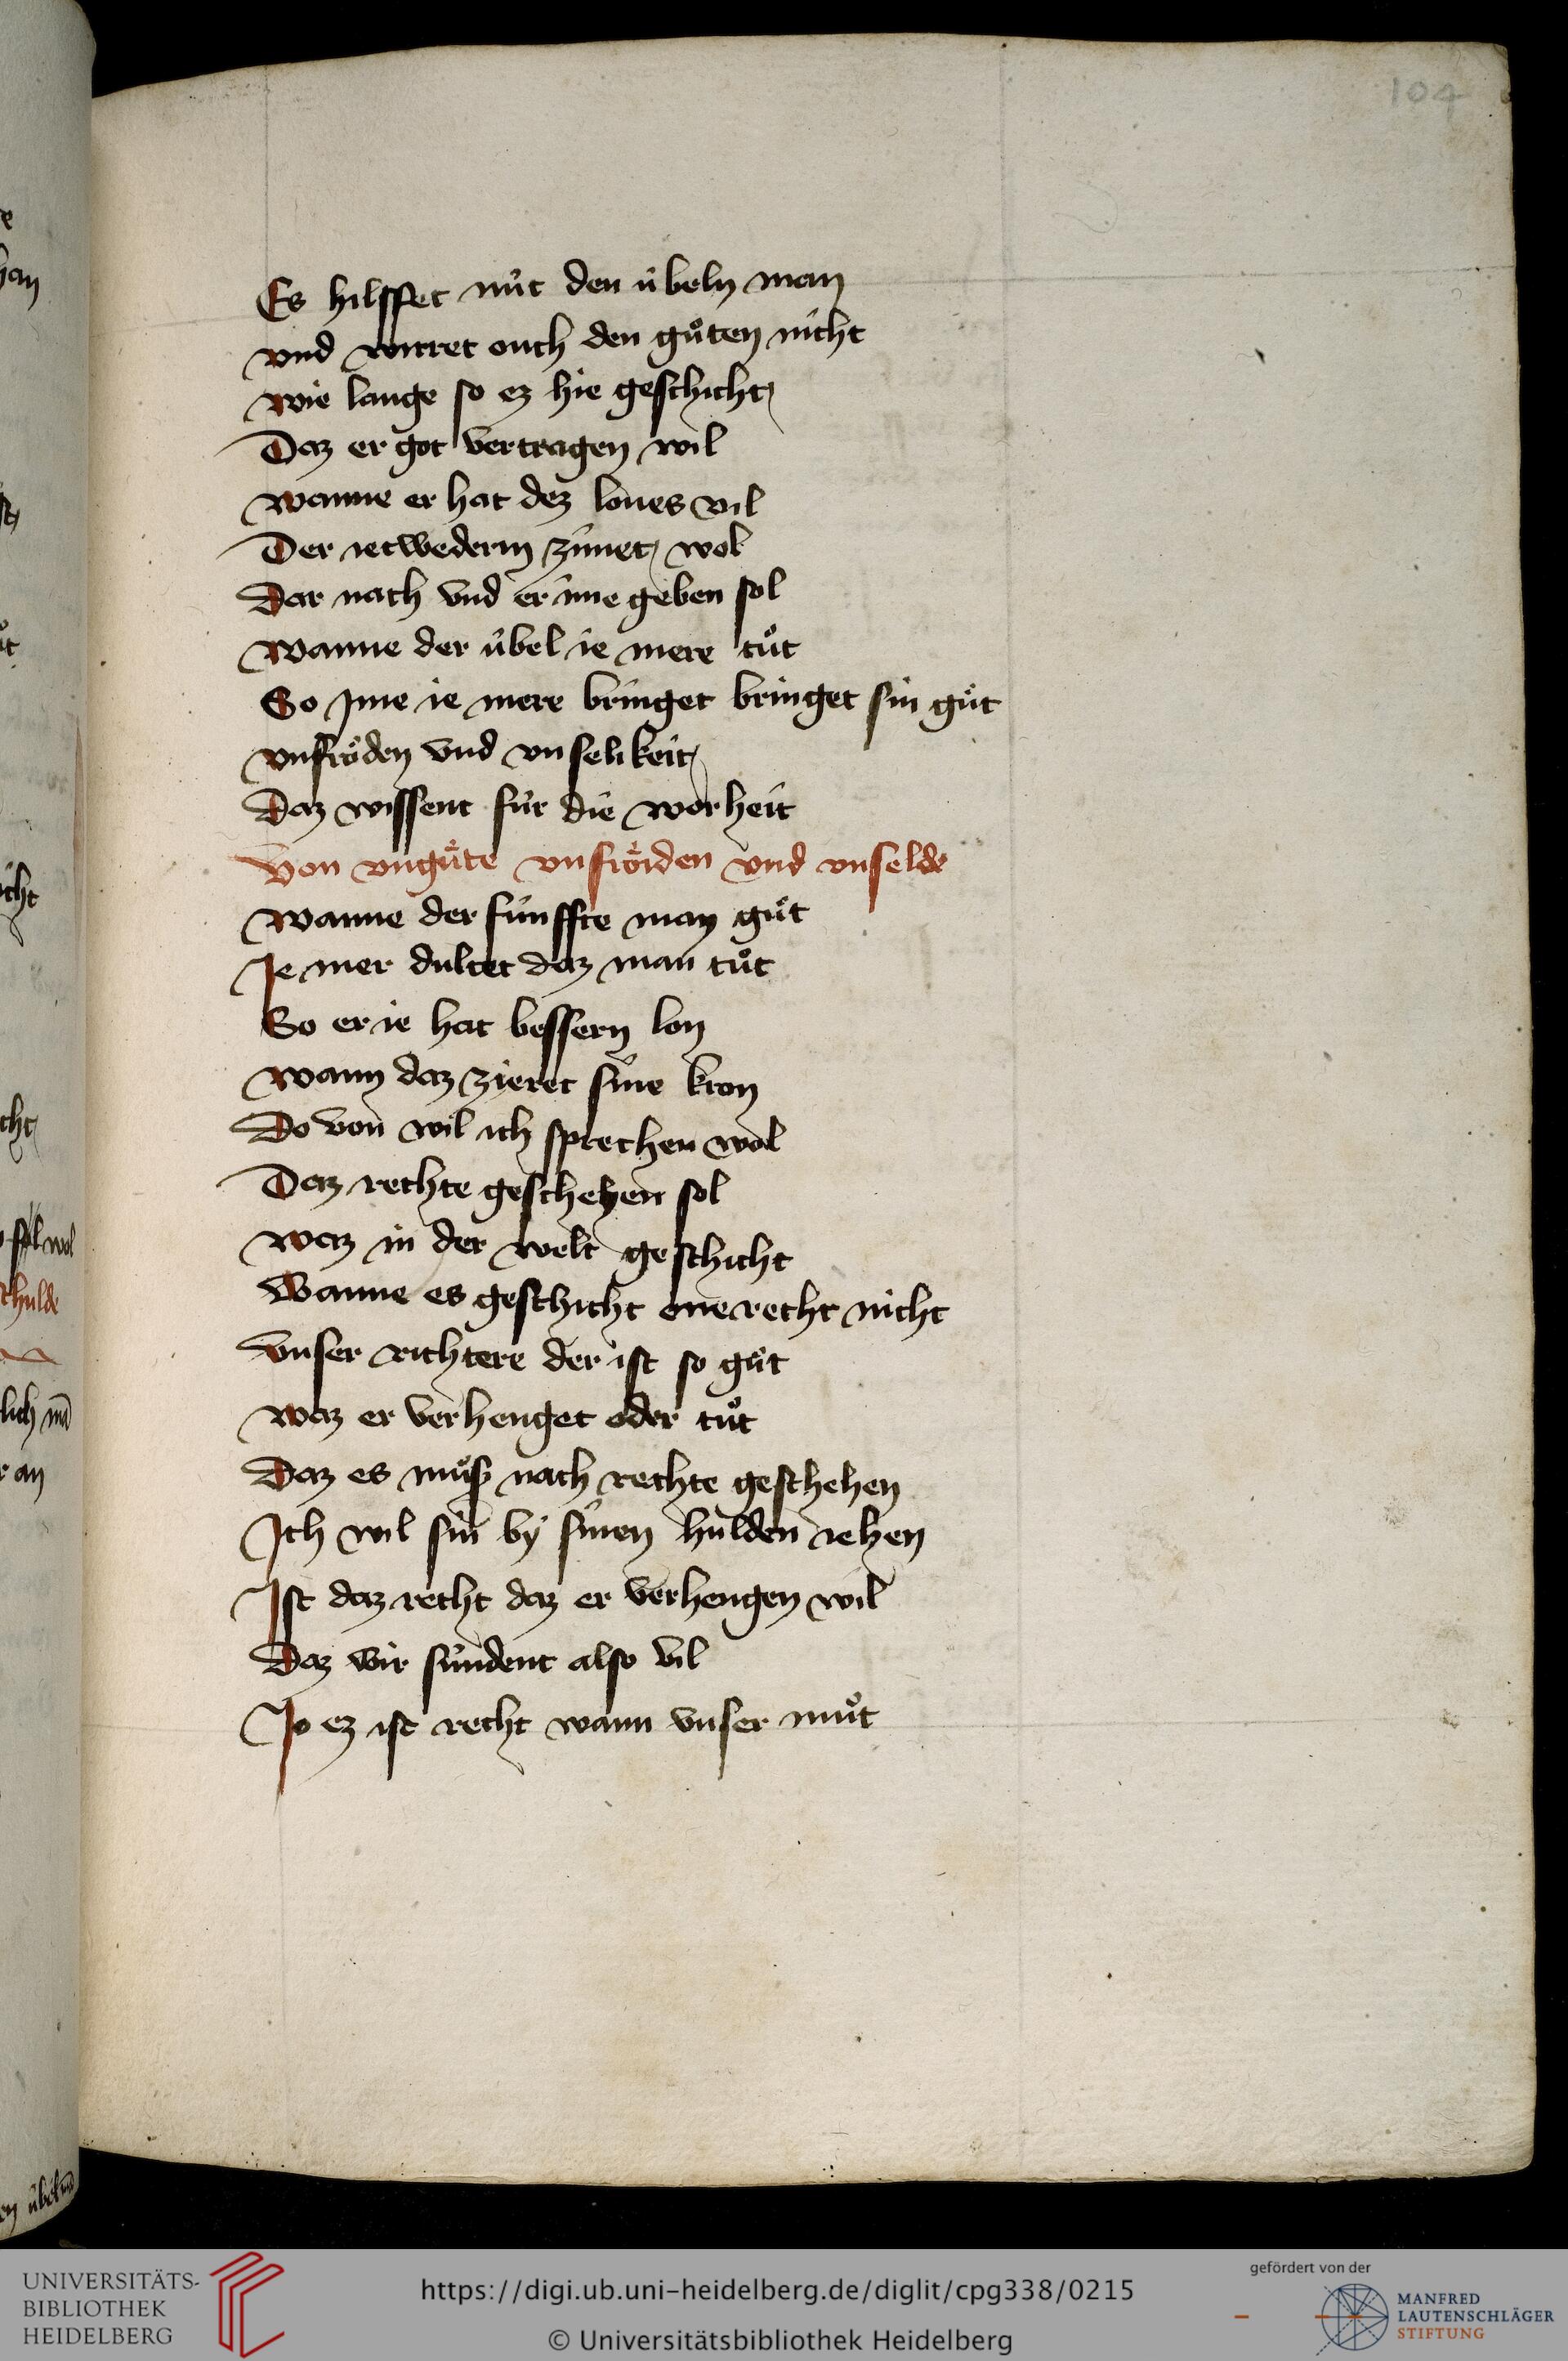 104
Es hilffet nüt den übeln man
vnd wirret ouch den gůten nicht
wie lange so ez hie geschicht
Daz er got vertragen wil
wanne er hat dez lones vil
Der ietwederm zimet wol
Dar nach vnd er ime geben sol
wanne der übel ie mere tůt
So Jme ie mere bringet bringet sin gůt
vnfröden vnd vnselikeit
Daz wissent für die worheit
Von vngůte vnfröiden vnd vnselde
wanne der fünffte man gůt
Je mer dultet daz man tůt
So er ie hat bessern lon
wann daz zieret sine kron
Do von wil ich sprechen wol
Daz rechte geschehen sol
waz in der welt geschicht
Wanne es geschicht one recht nicht
Vnser richtere der ist so gůt
waz er verhenget oder tůt
Daz es můß nach rechte geschehen
Ich wil sin by sinen hulden iehen
Ist daz recht daz er verhengen wil
Daz wir sündent also vil
Jo ez ist recht wann vnser můt
UNIVERSITÄTS-
BIBLIOTHEK
HEIDELBERG
https://digi.ub.uni-heidelberg.de/diglit/cpg338/0215
© Universitätsbibliothek Heidelberg
gefördert von der
MANFRED
LAUTENSCHLÄGER
STIFTUNG